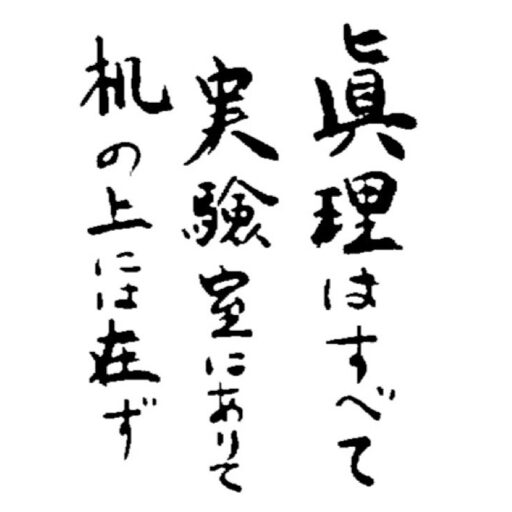 眞理はすべて
実験室にありて
机の上には在ず